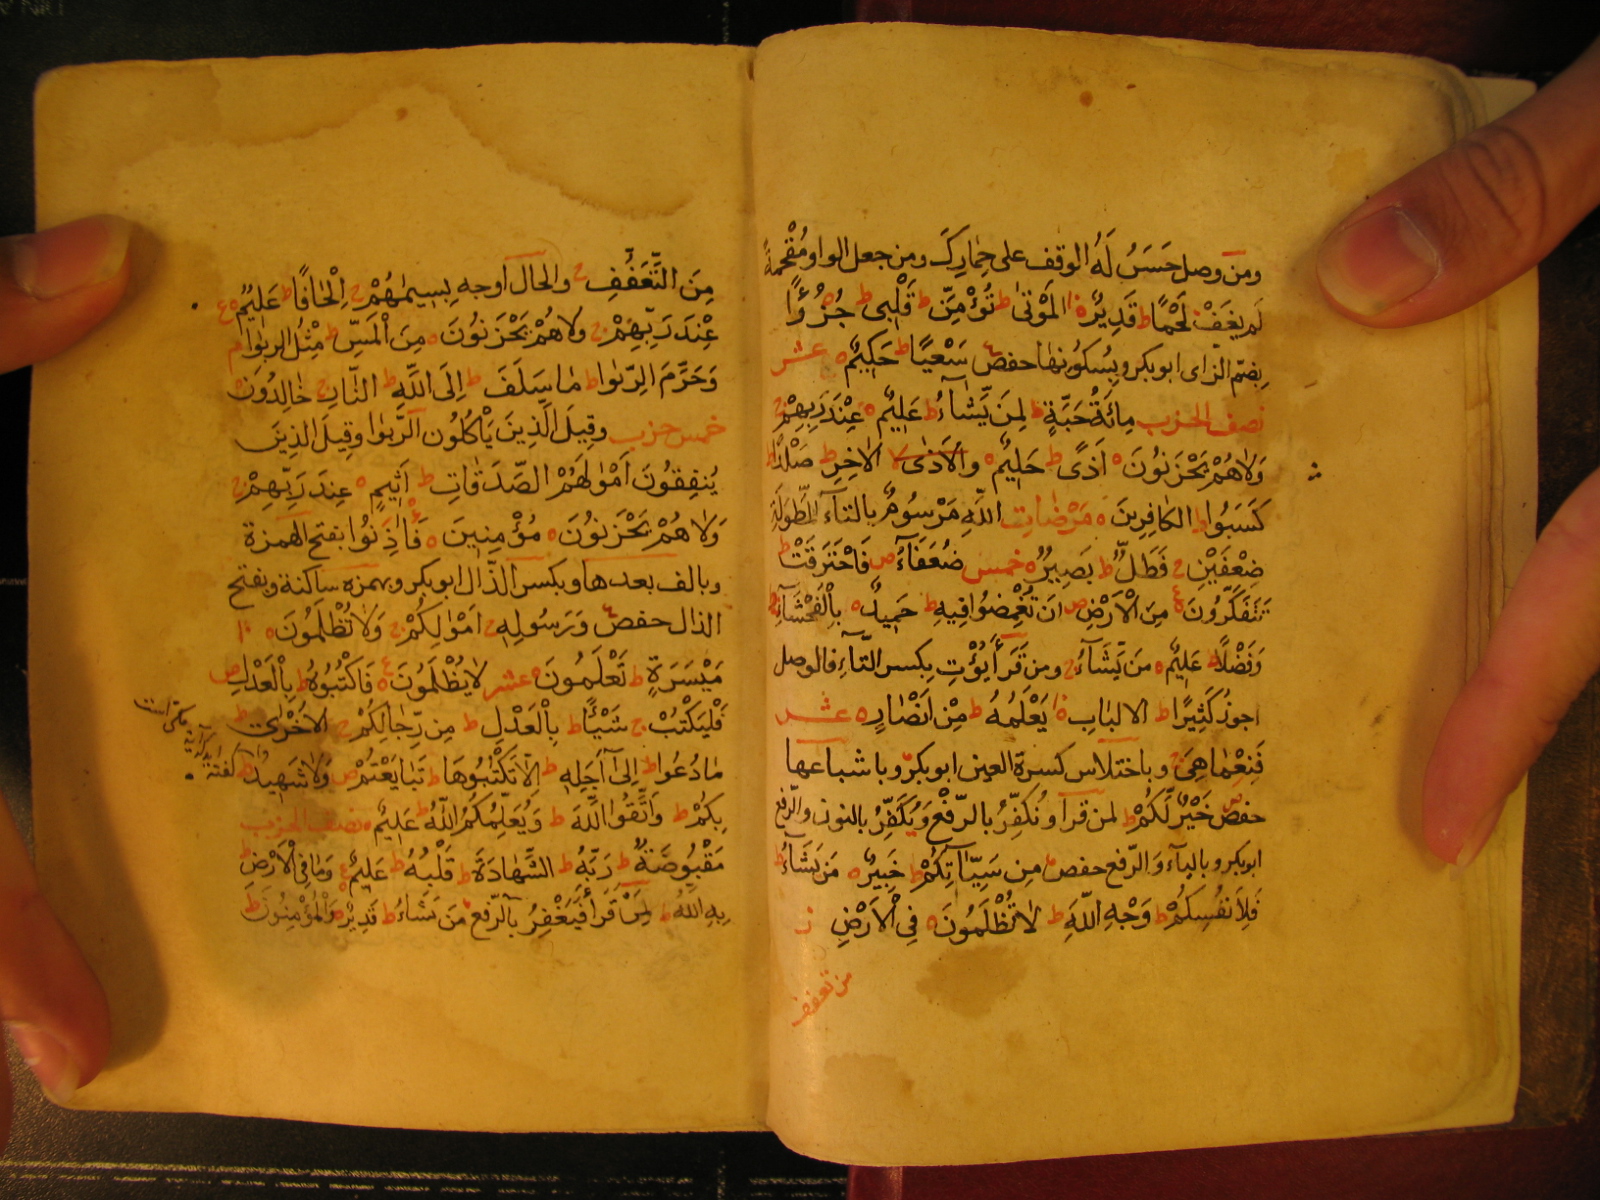 ومن وصل حَسَسُ لَهُ الوقف على حِمَارِكَ ومن جعل الواو مُقْحمةً
لم يَقف لَحْمًا ط قَدِيرٌ ه الْمَوْتىٰ ط تُؤْمِنْ ط قَلْبِى ط جُزُءًا
بضمّ الزاى ابوبكر وبسكونها حفص سَعْيًا ط حَكِيمٌ ه عشر
نصف الحزب مِائَةُ حَبَّةٍ ط لِمَنْ يَّشَآءُ ط عَلِيمٌ ه عِنْدَ رَبِّهِمْ ج
وَلَاهُمْ يَحْزَنُونَ ه اَذًى ط حَلِيمٌ ه وَالْاَذٰى لا الْاٰخِرِ ط صَلْدًا ط
كَسَبُوا ط الْكَافِرِينَ ه مَرْضَاتِ اللّٰهِ مَرْسُومٌ بالتاء المطولة
ضِعْفَيْنِ ج فَطَلٌّ ط بَصِيرٌ ه خمس ضُعَفَآءُ ص فَاحْتَرَقَتْ ط
تَتَفَكَّرُونَ ه ع مِنَ الْاَرْضِ ص اَنْ تُغْمِضُوا فِيهِ ط حَمِيدٌ ه بِالْفَحْشَآءِ ج
وَفَضْلًا ط عَلِيمٌ ه مَنْ يَّشَآءُ ج ومن قَرَأَ يُؤْتِ بكسر التّآءِ فالوصل
اجوز كَثِيرًا ط الالبَابِ ه يَعْلَمُهُ ط مِنْ اَنْصَارٍ ه عشر
فَنِعِمَّا هِىَ ج وباختلاس كسرة العين ابوبكر وباشباعها
حفص خَيْرٌ لَّكُمْ ط لمن قرأ ونُكَفِّرُ بالرّفع وَنُكَفِّرُ بالنون والرّفع
ابوبكر وبالياء وَالرّفع حفص مِن سَيِّاٰتِكُمْ ط خَبِيرٌ ه مَن يَشَآءُ ط
فَلِاَنفُسِكُمْ ط وَجْهِ اللّٰهِ ط لَا تُظْلَمُونَ ه فِى الْاَرْضِ ز
من تعفف
مِنَ التَّعَفُّفِ ج والحال اوجه بِسِيمٰهُمْ ج اِلْحَافًا ط عَلِيمٌ ه ع
عِنْدَ رَبِّهِمْ ج ولاهُمْ يَحْزَنُونَ ه مِنَ الْمَسِّ ط مِثْلُ الرِّبٰوا م
وَحَرَّمَ الرِّبٰوا ط مَا سَلَفَ ط اِلَى اللّٰهِ ط النَّارِ ج خَالِدُونَ ه
خمس حزب وقيل الَّذِينَ يَأْكُلُون الرِّبٰوا وقيل الذين
يُنفِقُونَ اَمْوٰلَهُمْ الصَّدَقَاتِ ط اَثِيمٍ ه عِندَ رَبِّهِمْ ج
وَلَا هُمْ يَحْزَنُونَ ه مُؤْمِنِينَ ه فَأْذَنُوا بفتح الهمزة
وبالف بعدها وبكسر الذّال ابوبكر وبهمزه ساكنة وبفتح
الذال حفص وَرَسُولِهِ ج اَمْوَالِكُمْ ج وَلَا تُظْلَمُونَ ه
مَيْسَرَةٍ ط تَعْلَمُونَ ه عشر لايُظْلَمُونَ ه ع فَاكْتُبُوهُ ط بِالْعَدْلِ ص
فَلْيَكْتُبْ ج شَيْئًا ط بِالْعَدْلِ ط مِن رِّجَالِكُمْ ج الاُخْرٰى ط
مَا دُعُوا ط اِلٰى اَجَلِهِ ط اَلَّا تَكْتُبُوهَا ط تَبَايَعْتُمْ ص وَلَا شَهِيدٌ ط
بِكُمْ ط وَاتَّقُوا اللّٰهَ ط وَيُعَلِّمُكُمُ اللّٰهُ ط عَلِيمٌ ه نصف الحزب
مَقْبُوضَةٌ ط رَبَّهُ ط الشَّهَادَةَ ط قَلْبُهُ ط عَلِيمٌ ه ع وَمَا فِى الْاَرْضِ ط
بِهِ اللّٰهُ ط لِمَنْ قَرَأَ فَيَغْفِرُ بالرّفع مَن يَشَآءُ ط قَدِيرٌ ه وَالْمُؤْمِنُونَ ط